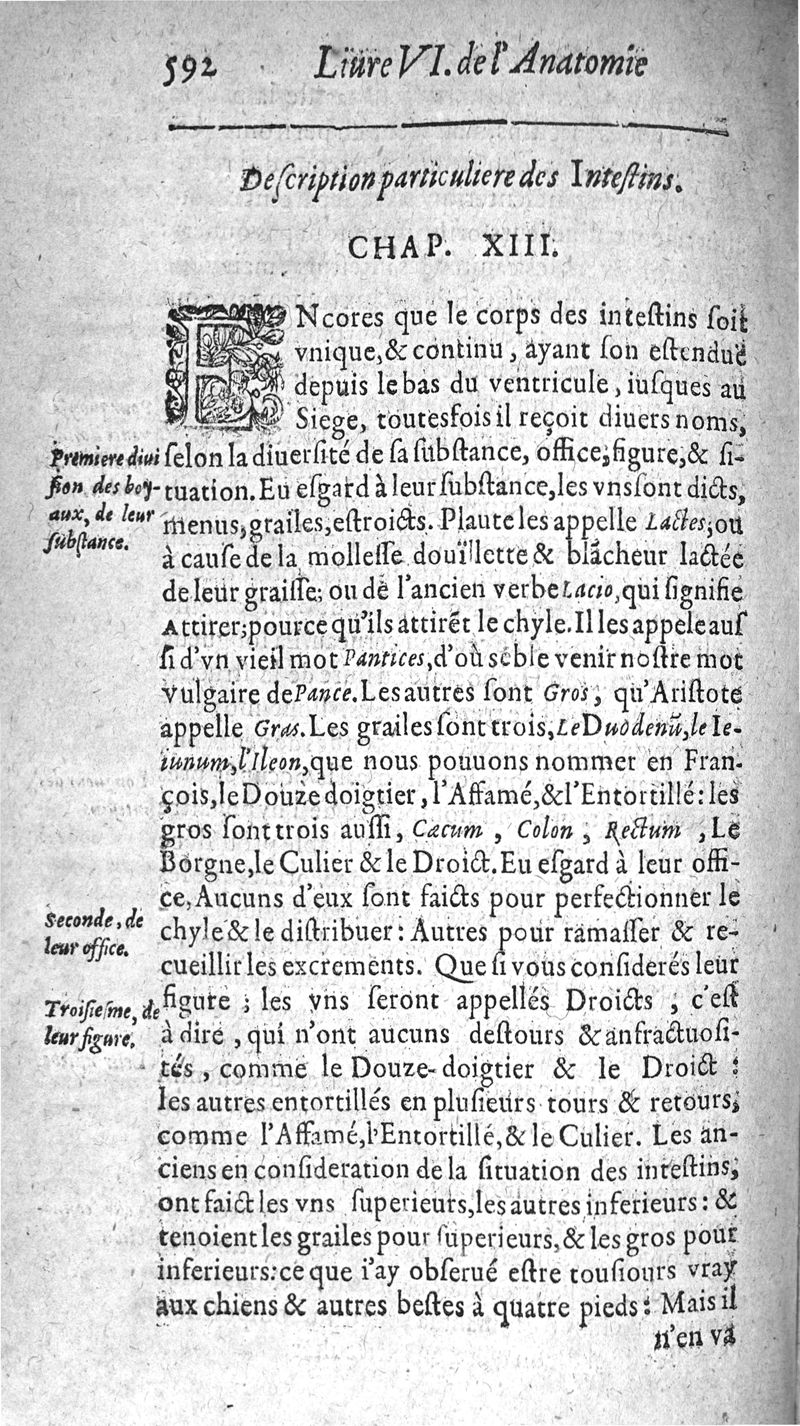 592 Liure VI. de l'Anatomie
Deſcription particuliere des Inteſtins.
CHAP. XIII.
ENcores que le corps des inteſtins ſoit
vnique, & continu, ayant ſon eſtenduë
depuis le bas du ventricule, iuſques au
Siege, toutesfois il reçoit diuers noms,
ſelon la diuerſité de ſa ſubſtance, office, figure, & ſi-
tuation. Eu eſgard à leur ſubſtance, les vns ſont dicts,
menus, grailes, eſtroicts. Plaute les appelle Lactes, ou
à cauſe de la molleſſe douïllette & blãcheur lactée
de leur graiſſe; ou de l'ancien verbe Lacio, qui ſignifie
Attirer; pource qu'ils attirẽt le chyle. Il les appele auſ
ſi d'vn vieil mot Pantices, d'où sẽble venir noſtre mot
vulgaire de Pance. Les autres ſont Gros, qu'Ariſtote
appelle Gras. Les grailes ſont trois, Le Duodenũ, le Ie-
iunum, l'Ileon, que nous pouuons nommer en Fran-
çois, le Douze doigtier, l'Affamé, & l'Entortillé: les
gros ſont trois auſſi, Cæcum, Colon, Rectum, Le
Borgne, le Culier & le Droict. Eu eſgard à leur offi-
ce, Aucuns d'eux ſont faicts pour perfectionner le
chyle & le diſtribuer: Autres pour ramaſſer & re-
cueillir les excrements. Que ſi vous conſiderés leur
figure; les vns ſeront appellés Droicts, c'eſt
à dire, qui n'ont aucuns deſtours & anfractuoſi-
tés, comme le Douze-doigtier & le Droict:
les autres entortillés en pluſieurs tours & retours,
comme l'Affamé, l'Entortillé, & le Culier. Les an-
ciens en conſideration de la ſituation des inteſtins,
ont faict les vns ſuperieurs, les autres inferieurs: &
tenoient les grailes pour ſuperieurs, & les gros pour
inferieurs: ce que i'ay obſerué eſtre touſiours vray
aux chiens & autres beſtes à quatre pieds: Mais il
n'en va
Premiere diui
ſion des boy-
aux, de leur
ſubſtance.
Seconde, de
leur office.
Troiſieſme, de
leur figure.